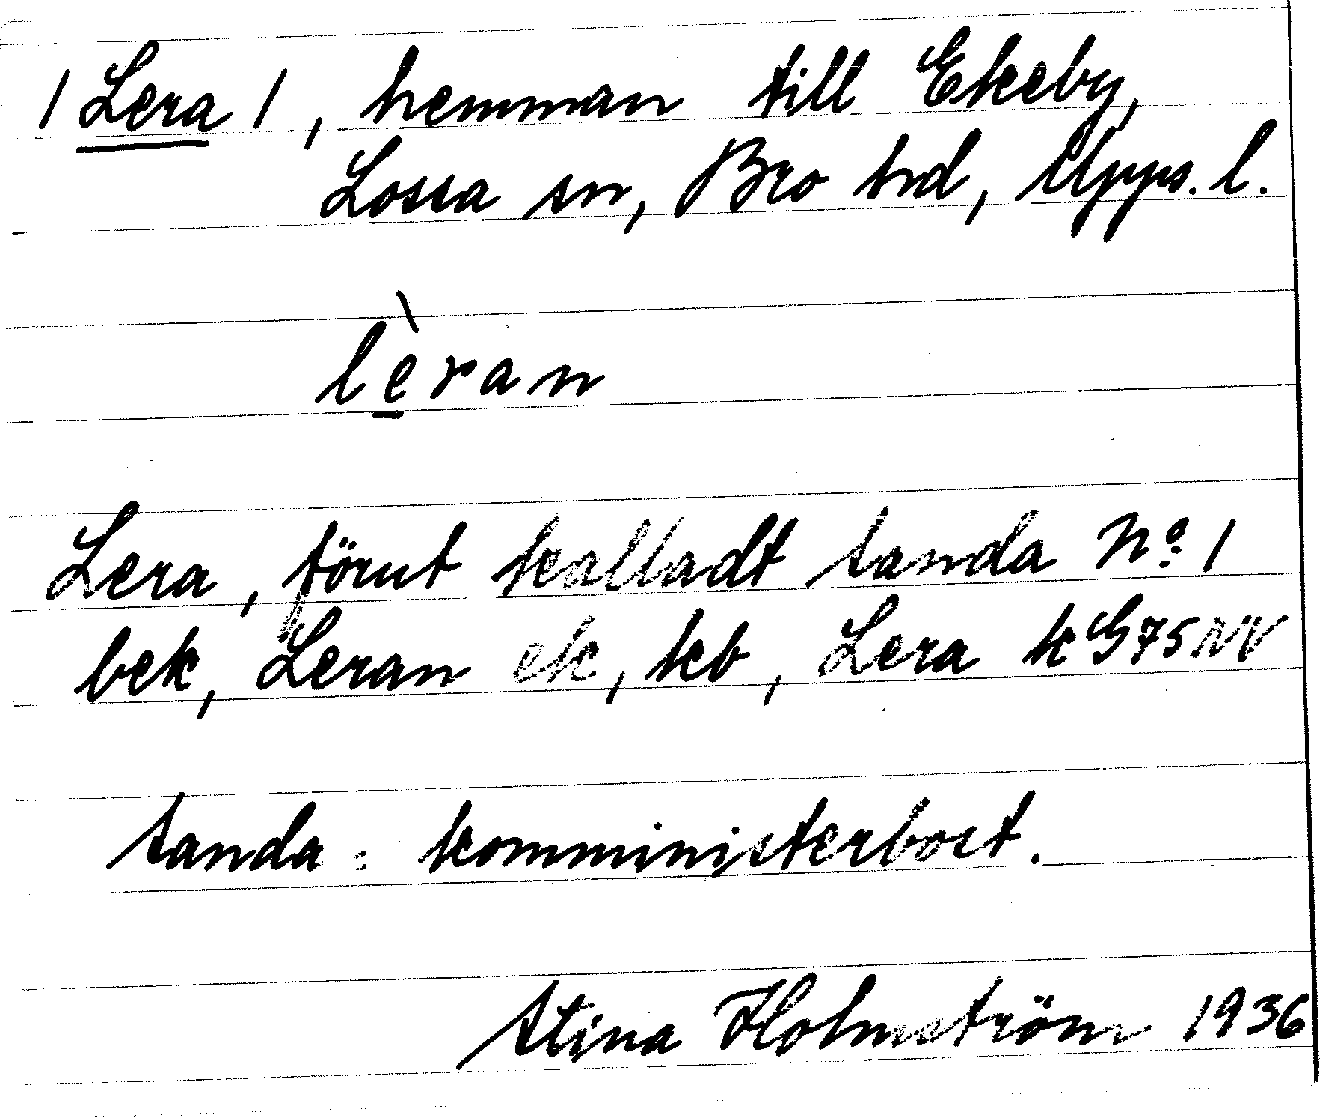 / Lera /, hemman till Ekeby,
Lossa sn, Bro hd, Upps. l.
lèran
Lera, förut kalladt Sanda No. 1
bek, Leran ek, kb, Lera k G 75 NV
Sanda: komministerbost.
Stina Holmström 1936